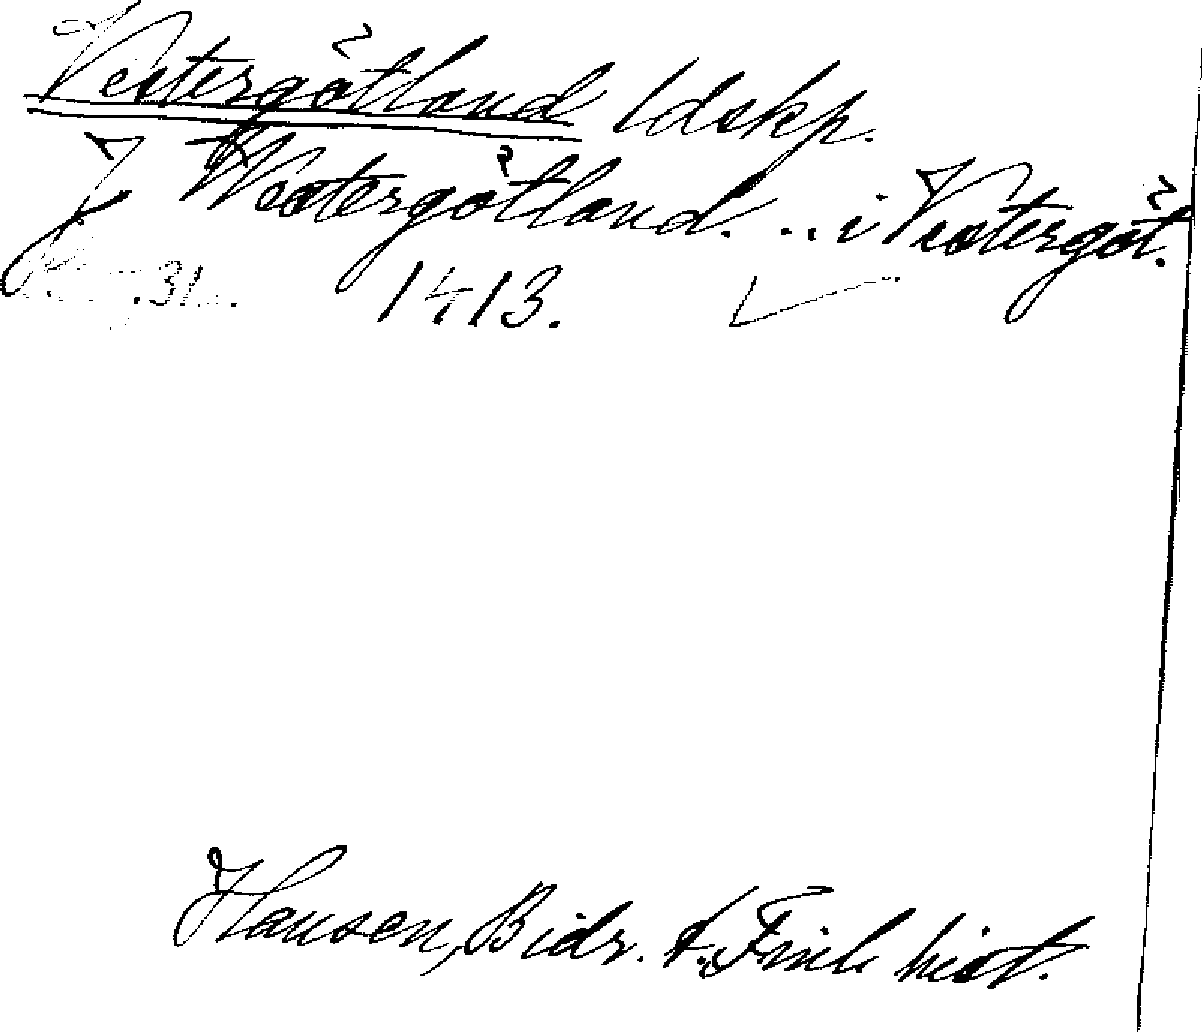 Vestergötland ldskp.
J Westergötland. .. i Vestergöt.
31 1413.
Hausen, Bidr. t. Finl. hist.